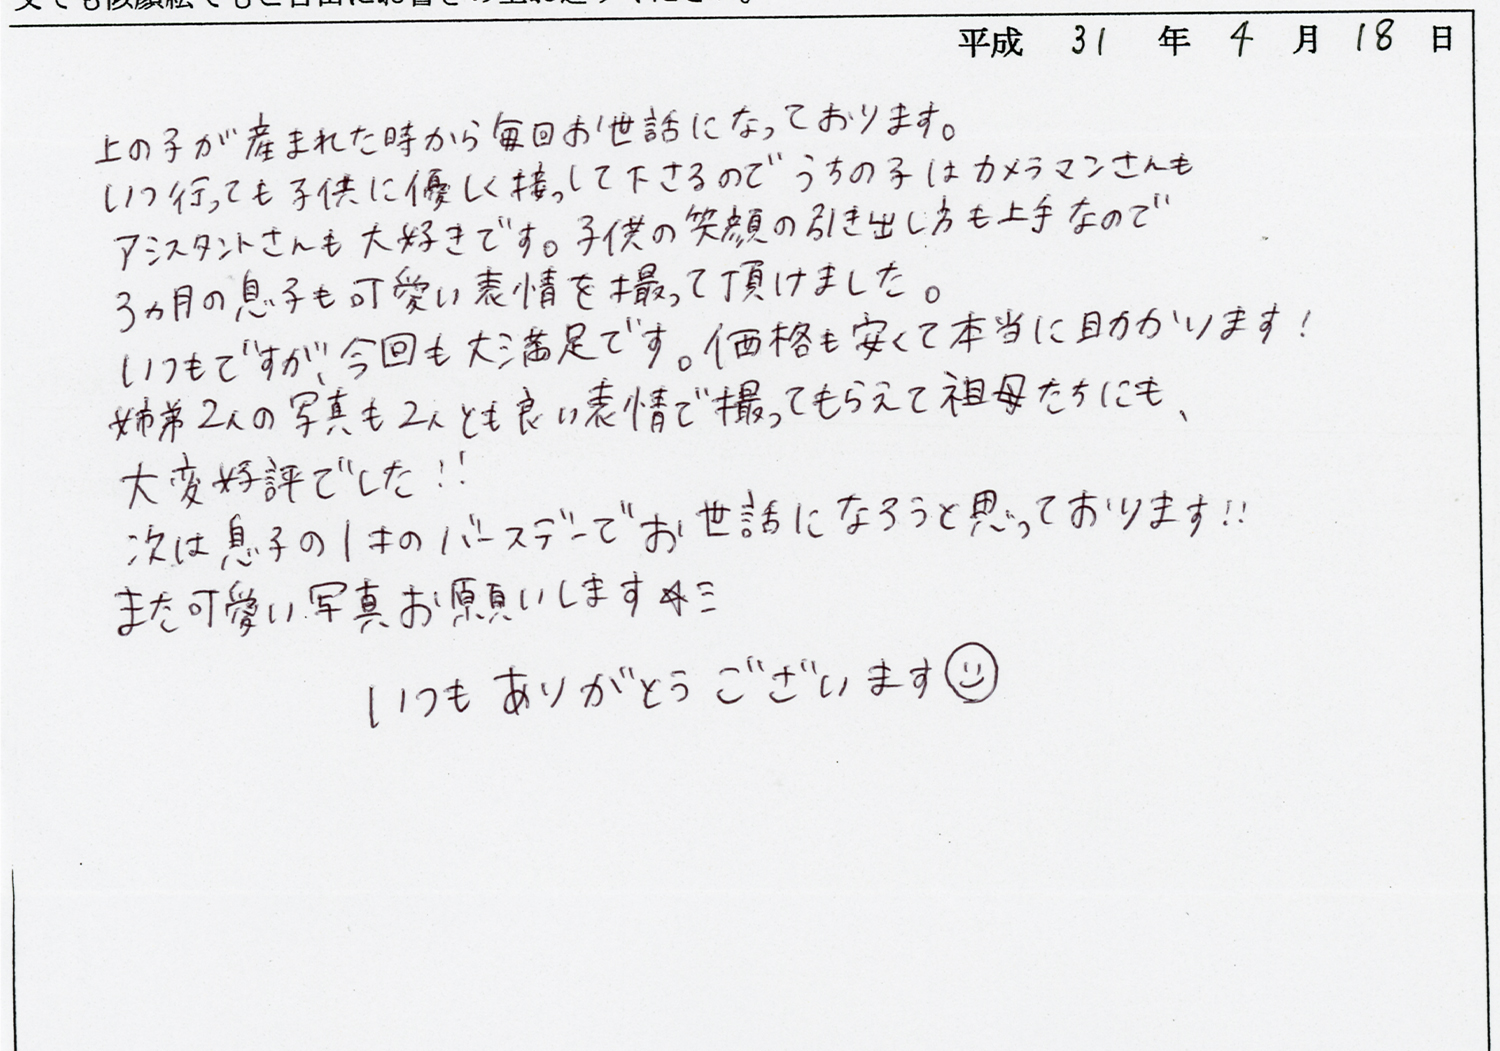 平成 31 年 4 月 18 日
上の子が産まれた時から毎回お世話になっております。
いつ行っても子供に優しく接っして下さるのでうちの子はカメラマンさんも
アシスタントさんも大好きです。子供の笑顔の引き出し方も上手なので
3ヵ月の息子も可愛い表情を撮って頂けました。
いつもですが、今回も大満足です。価格も安くて本当に助かります!
姉弟2人の写真も2人とも良い表情で撮ってもらえて祖母たちにも、
大変好評でした!!
次は息子の1才のバースデーでお世話になろうと思っております!!
また可愛い写真お願いします☆ミ
いつもありがとうございます☺